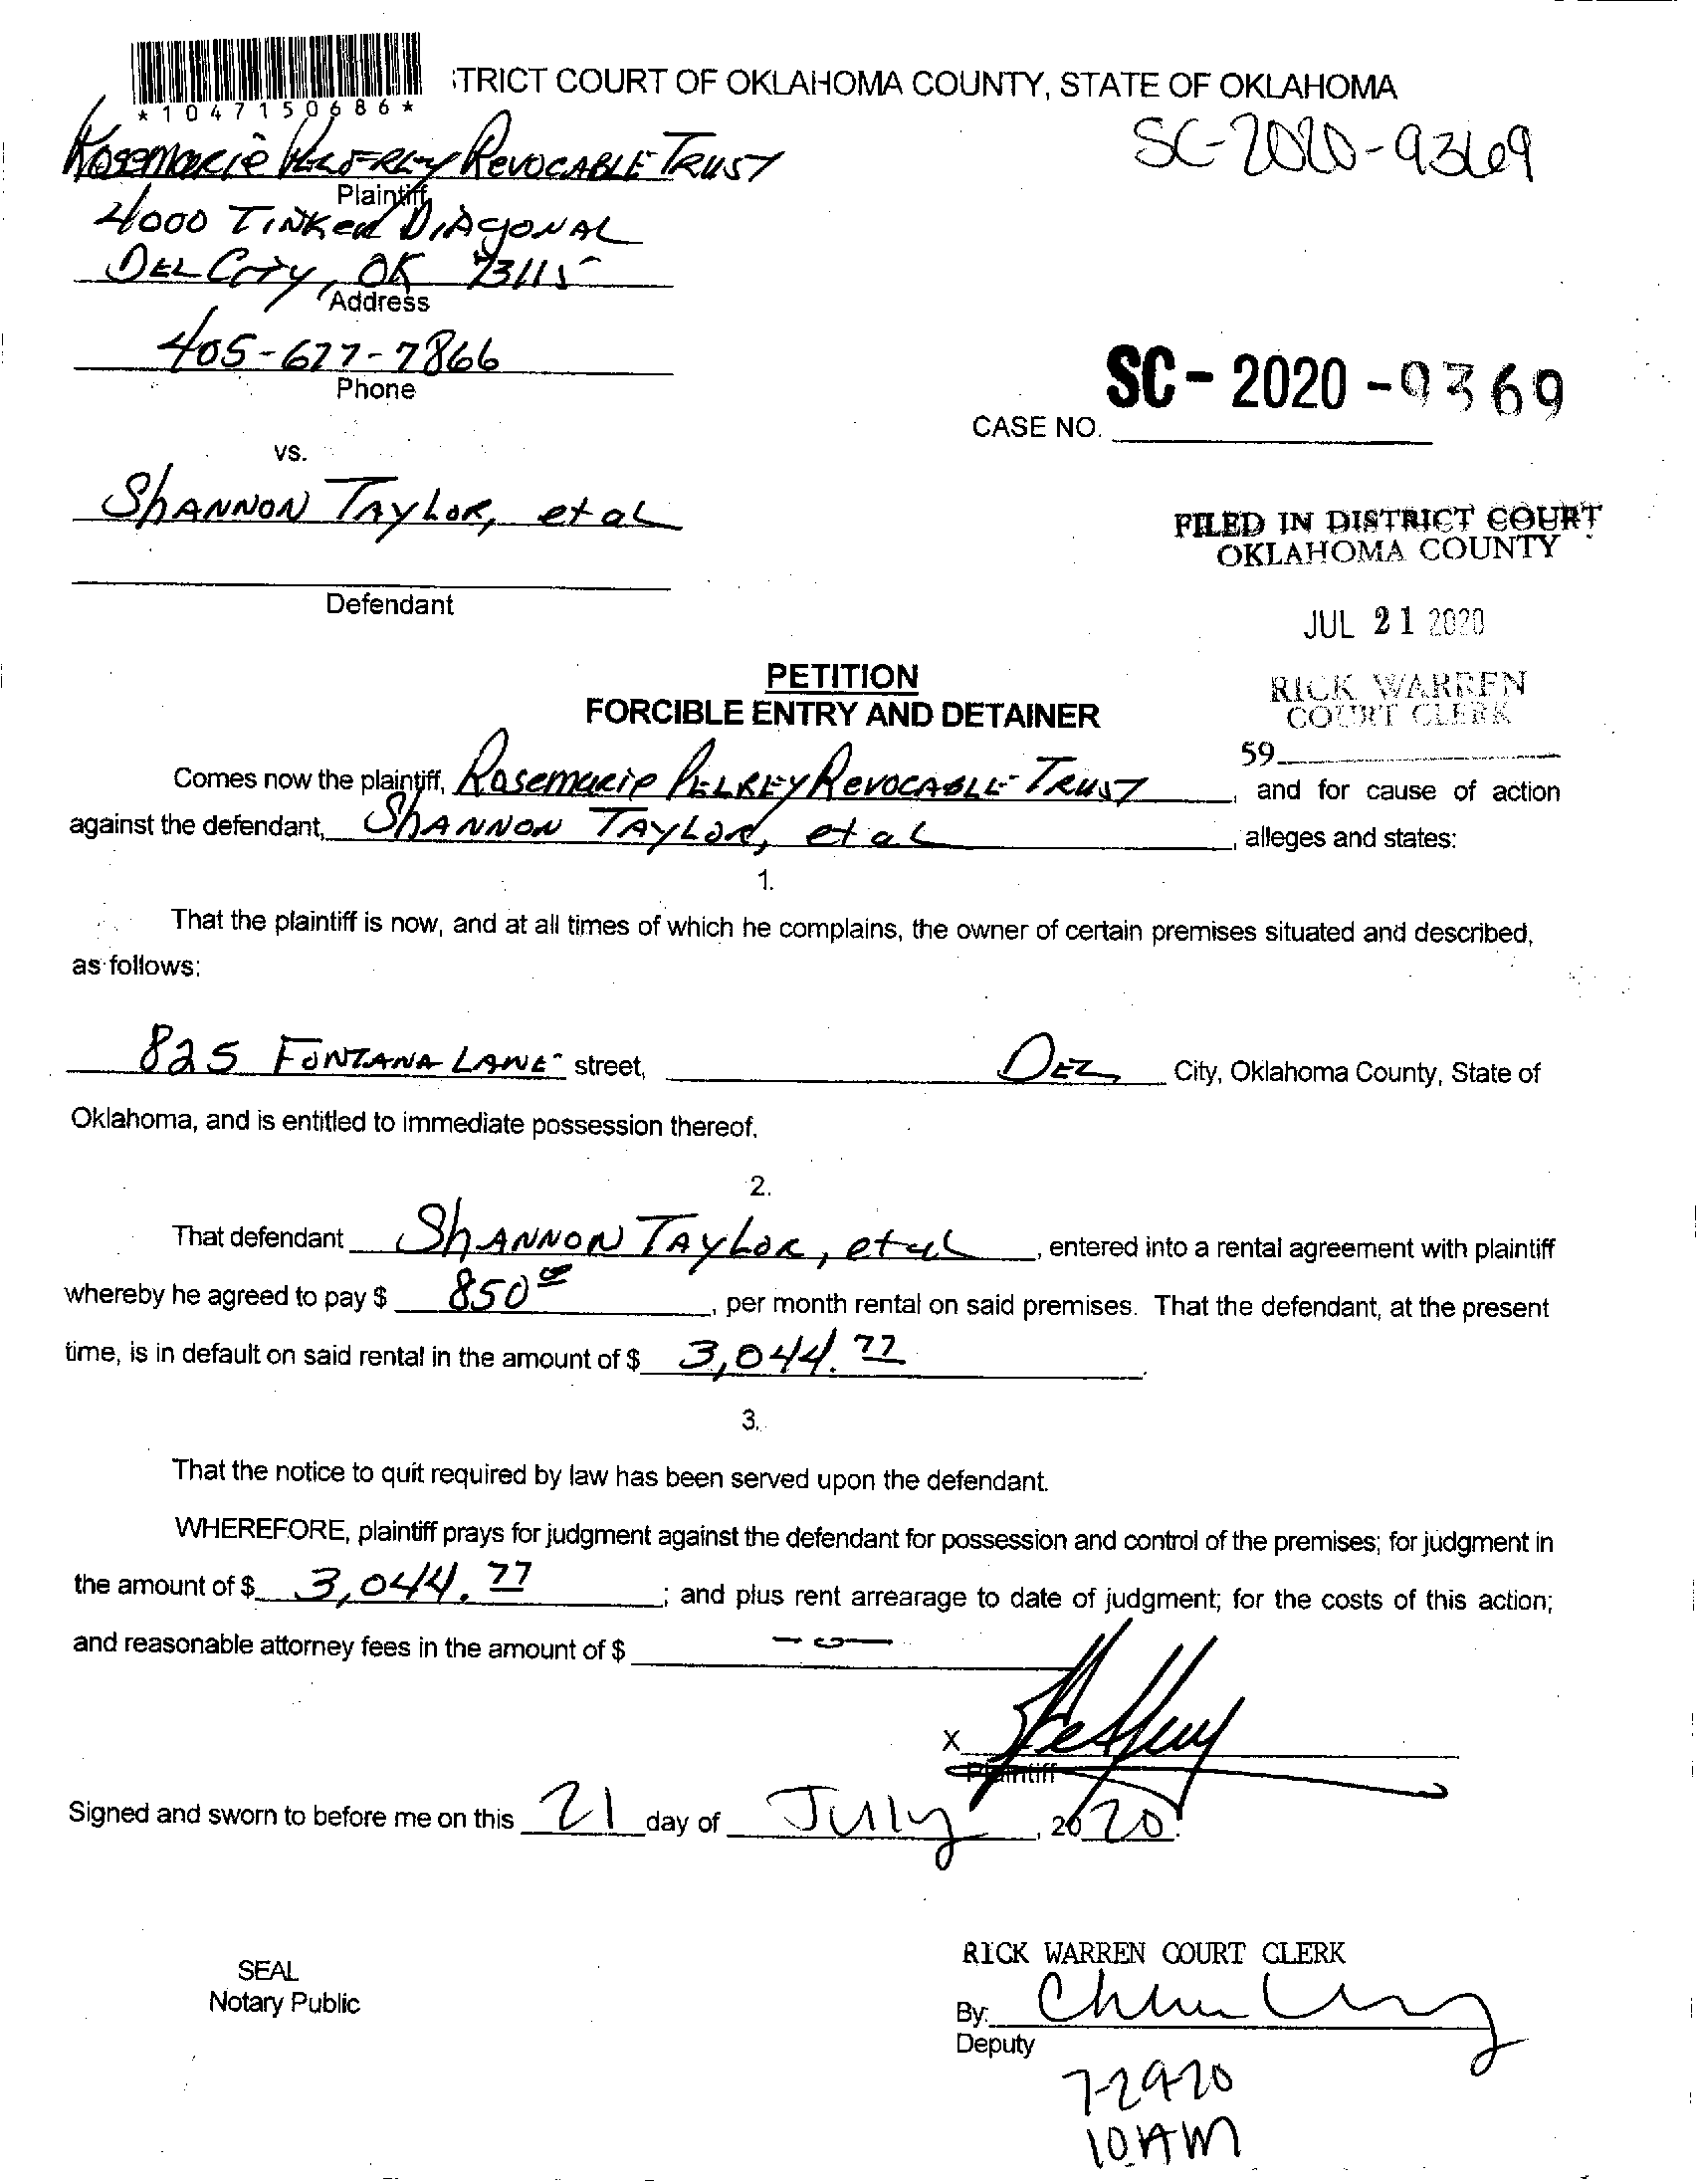 :TRICT COURT OF OKLAHOMA COUNTY, STATE OF OKLAHOMA
*1047150686*
SC-2020-9369
Rosemarie Revocable Trust
Plaintiff
4000 Tinker Diagonal
Del City, OK 73115
Address
405-677-7866
Phone
SC-2020-9369
CASE NO.
vs.
Shannon Taylor, et al
Defendant
FILED IN DISTRICT COURT
OKLAHOMA COUNTY
JUL 21 2020
RICK WARREN
COURT CLERK
59
PETITION
FORCIBLE ENTRY AND DETAINER
Comes now the plaintiff, Rosemarie Pelfrey Revocable Trust, and for cause of action
against the defendant, Shannon Taylor, et al, alleges and states:
1.
That the plaintiff is now, and at all times of which he complains, the owner of certain premises situated and described,
as follows:
825 Fontana Lane street, Del City, Oklahoma County, State of
Oklahoma, and is entitled to immediate possession thereof.
2.
That defendant Shannon Taylor, et al, entered into a rental agreement with plaintiff
whereby he agreed to pay $ 850 00, per month rental on said premises. That the defendant, at the present
time, is in default on said rental in the amount of $ 3,044.77.
3.
That the notice to quit required by law has been served upon the defendant.
WHEREFORE, plaintiff prays for judgment against the defendant for possession and control of the premises; for judgment in
the amount of $ 3,044.77; and plus rent arrearage to date of judgment; for the costs of this action;
and reasonable attorney fees in the amount of $ -0-
X
Plaintiff
Signed and sworn to before me on this 21 day of July, 2020.
SEAL
Notary Public
RICK WARREN COURT CLERK
By:
Deputy
7-29-20
10AM